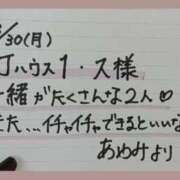 /30(月)
Jハウス1・ス様
緒がたくさんな2人♡
た...イチャイチャできるといいな
あめみより